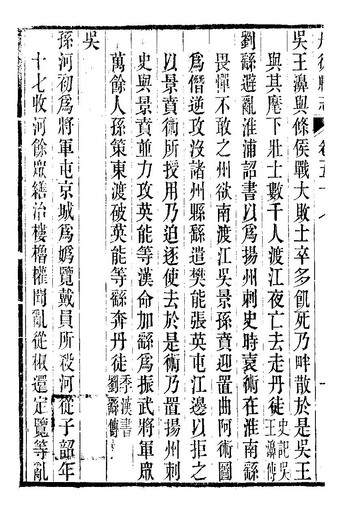 丹徒縣志 卷五十八 一
吳王濞與條侯戰大敗士卒多飢死乃畔散於是吳王
與其麾下壯士數千人渡江夜亡去走丹徒史記吳王濞傳
劉繇避亂淮浦詔書以爲揚州刺史時袁術在淮南繇
畏憚不敢之州欲南渡江吳景孫賁迎置曲阿術圖
爲僭逆攻沒諸州縣繇遣樊能張英屯江邊以拒之
以景賁術所授用乃迫逐使去於是術乃置揚州刺
史與景賁並力攻英能等漢命加繇爲振武將軍眾
萬餘人孫策東渡破英能等繇奔丹徒季漢書劉繇傳
吳
孫河初爲將軍屯京城爲嬀覽戴員所殺河從子韶年
十七收河餘眾繕治樓櫓權聞亂從椒還定覽等亂